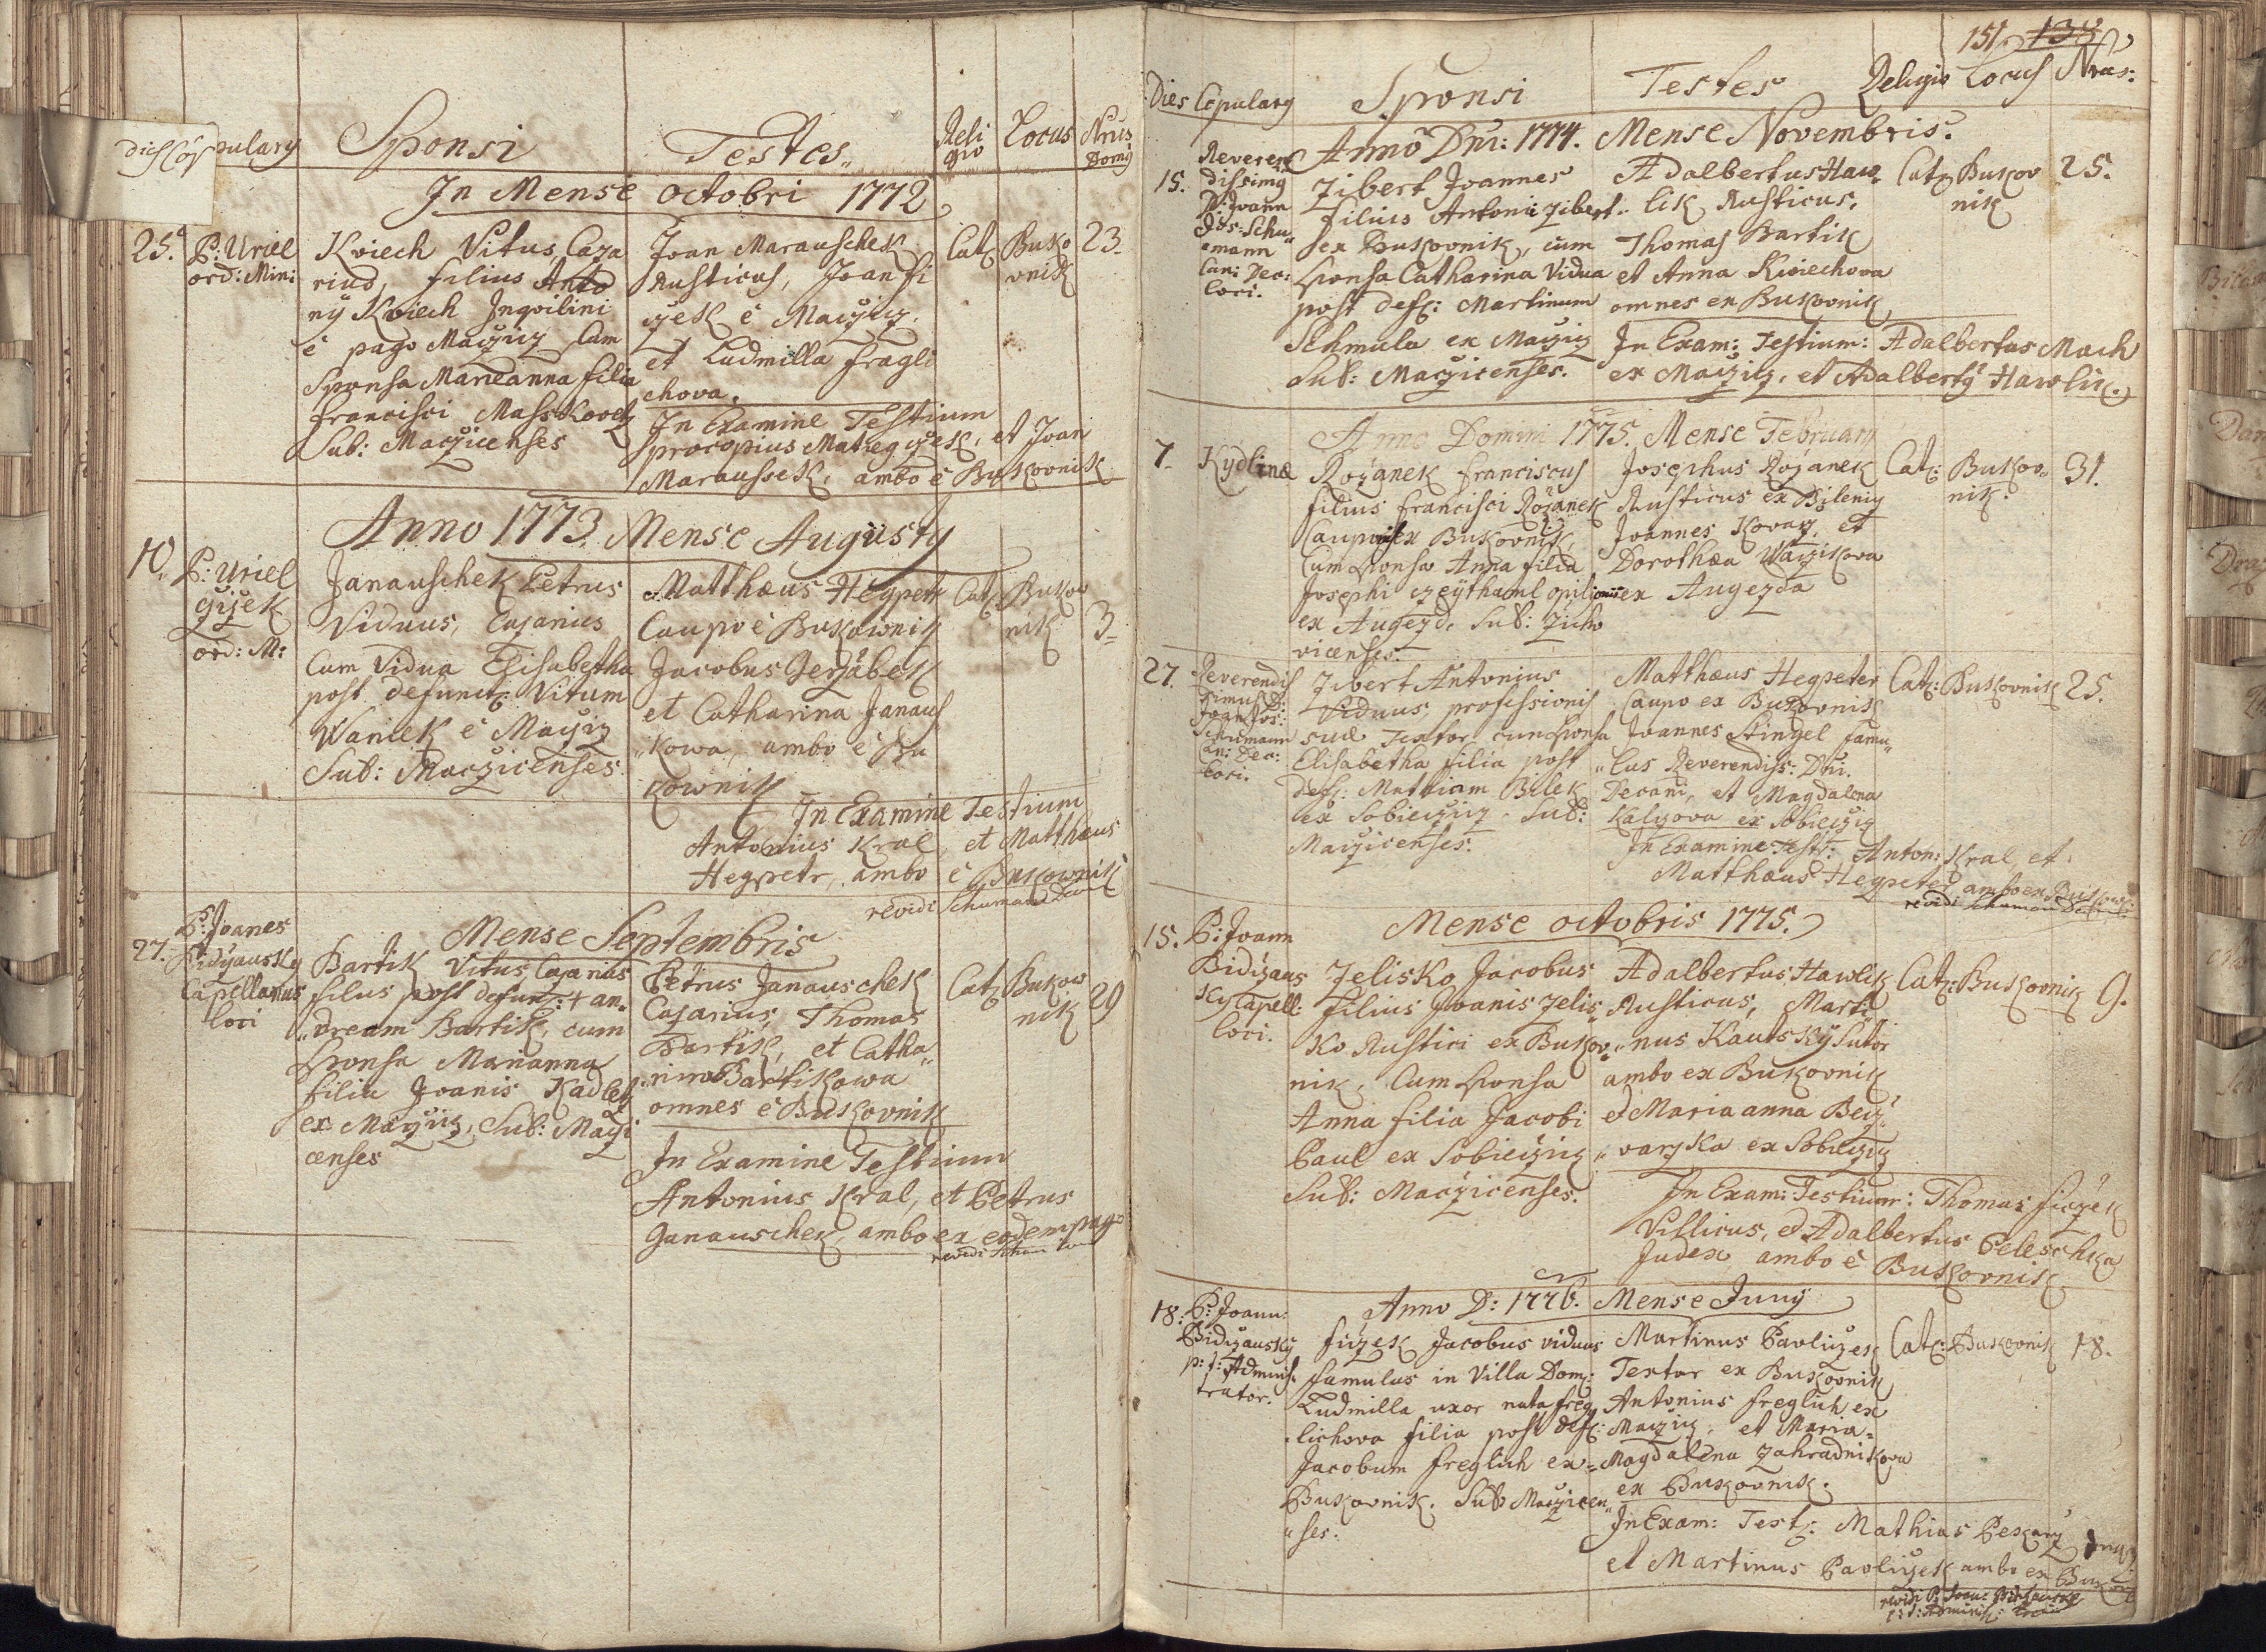 Dies Copulacy Sponsi Testes Reli gio Locus Nrus Domy
In Mense octobri 1772
25. P: Uriel
ord: Min:
Kviech Vitus Caza
rius, filius Anto
nÿ Kviech Inqvilini
è pago Maczicz Cum
Sponsa Marianna filia
Francisci Masskovetz
Sub: Maczicenses
Joan Marauschek
Rusticus, Joan Fi
czek è Maczicz.
et Ludmilla Fragli
chova.
In Examine Testium
procopius Matiegczek, et Joan
Maraussek, ambo è Bukovnik
Cat: Buko
vnik
23.
Anno 1773. Mense Augusty
10. P: Uriel
Gÿek
ord: M:
Janauschek Petrus
Viduus, Cazarius
Cum Vidua Elisabetha
post defunct: Vitum
Waniek è Maczicz
Sub: Maczicenses.
Matthæus Hegpetr
Caupo è Bukownik
Jacobus Jerzabek
et Catharina Janaus
"kowa, ambo è Bu
kownik
In Examine Testium
Antonius Kral, et Matthæus
Hegpetr, ambo è Bukownik
revidi Schuman Dec
Cat: Bukov
nik
3.
Mense Septembris
27. P: Joanes
Bidÿausky
Capellanus
loci
Bartik Vitus Cazarius
filius post defunc: + an
"dream Bartik, cum
Sponsa Marianna
filia Joanis Kadletz
ex Maczicz, Sub: Maczi
censes
Petrus Janauschek
Cazarius, Thomas
Bartik, et Catha"
"rina Bartikowa
omnes è Bukovnik
In Examine Testium
Antonius Kral, et Petrus
Ganauschek, ambo ex eodem pago
Cat: Bukow
nik
29
151
Dies Copulacy Sponsi Testes Religio Locus Nrus:
Anno Dni: 1774. Mense Novembris.
15. Reveren
dissimq
D: Joann
Jos: Schu"
"mann
Can: Dec:
loci.
Zibert Joannes
filius Antonii Zibert
ex Bukovnik, cum
Sponsa Catharina Vidua
post def: Martinum
Schmula ex Maczicz
Sub: Maczicenses.
Adalbertus Haw"
lik Rusticus,
Thomas Bartik
et Anna Kwiechova
omnes ex Bukovnik
In Exam: Testium: Adalbertus Mach
ex Maczicz, et Adalbertq Hawlik.
Cat: Bukov
nik
25.
Anno Domini 1775. Mense February
7. Kydlinæ
Rozanek Franciscus
filius Francisci Rozanek
Cauponis ex Bukovnik
Cum Sponsa Anna filia
Josephi czeÿthaml opilionis
ex Augezd. Sub: Zicho
vicenses.
Josephus Rozanek
Rusticus ex Bilenicz
Joannes Kovarz, et
Dorothæa Waczikova
ex Augezda
Cat: Bukov"
nik.
31.
27. Reverendis
simus D:
Joan Jos:
Schumann
Can: Dec:
loci.
Zibert Antonius
Viduus, professionis
suæ Textor, cum Sponsa
Elisabetha filia post
def: Mathiam Bilek
ex Sobieczicz. Sub:
Maczicenses.
Matthæus Hegpeter
Caupo ex Bukovnik
Joannes Stingel famu"
"lus Reverendiss: Dni.
Decani, et Magdalena
Kalczova ex Sobieczicz
In Examine Test: Anton: Kral, et
Matthæus Hegpeter, ambo ex Bukow:
revidi Schuman
Cat: Bukovnik 25.
Mense octobris 1775.
15. P: Joann
Bidizaus
ky Capell:
loci.
Zelisko Jacobus
Filius Joanis Zelis"
ko Rustici ex Bukov"
nik. Cum Sponsa
Anna filia Jacobi
Paul ex Sobieczicz
Sub: Maczicenses.
Adalbertus Hawlik
Rusticus, Marti
"nus Kautský Sutor
ambo ex Bukovnik
et Maria anna Becz"
"varzka ex Sobieczicz
In Exam: Testium: Thomas Ficzek
Villicus, et Adalbertus Peleschka
Judex, ambo è Bukovnik
Cat: Bukovnik 9.
Anno D: 1776. Mense Juny
18. P: Joann:
Bidizauskÿ
p: t: Adminis"
trator.
Ficzek Jacobus viduus
famulus in Villa Dom:
Ludmilla uxor nata freg
"lichova filia post def:
Jacobum Freglich ex"
Bukovnik. Sub Maczicen"
"ses.
Martinus Pavliczek
Textor ex Bukovnik
Antonius Freglich ex
Maczicz, et Maria"
Magdalena Zahradnikova
ex Bukovnik.
In Exam: Test: Mathias Pekarz
et Martinus Pavliczek ambo ex Bukov
Cat: Bukovnik 18.